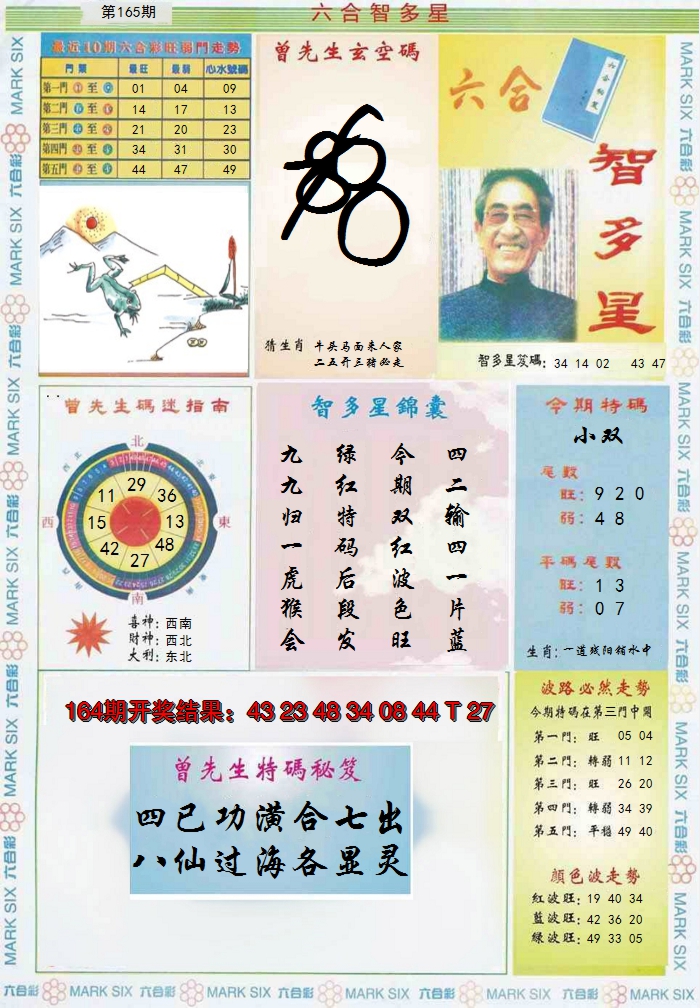 第165期
六合智多星
最近10期六合彩旺弱門走勢
門類 最旺 最弱 心水號碼
第一門 至 01 04 09
第二門 至 14 17 13
第三門 至 21 20 23
第四門 至 34 31 30
第五門 至 44 47 49
曾先生玄空碼
猜生肖 牛头马面来人家
二五开三猪必走
六合
智多星
智多星笈碼：34 14 02 43 47
曾先生碼迷指南
北
29
11 36
西 15 13 東
42 48
27
南
喜神：西南
财神：西北
大利：东北
智多星錦囊
九九归一虎猴会
绿红特码后段发
今期双红波色旺
四二输四一片蓝
今期特碼
小双
尾數
旺：9 2 0
弱：4 8
平碼尾數
旺：1 3
弱：0 7
生肖：一道残阳铺水中
164期开奖结果：43 23 48 34 08 44 T 27
曾先生特碼秘笈
四已功潢合七出
八仙过海各显灵
波路必然走勢
今期特碼在第三門中開
第一門：旺 05 04
第二門：轉弱 11 12
第三門：旺 26 20
第四門：轉弱 34 39
第五門：平穩 49 40
顔色波走勢
紅波旺：19 40 34
藍波旺：42 36 20
綠波旺：49 33 05
MARK SIX 六合彩